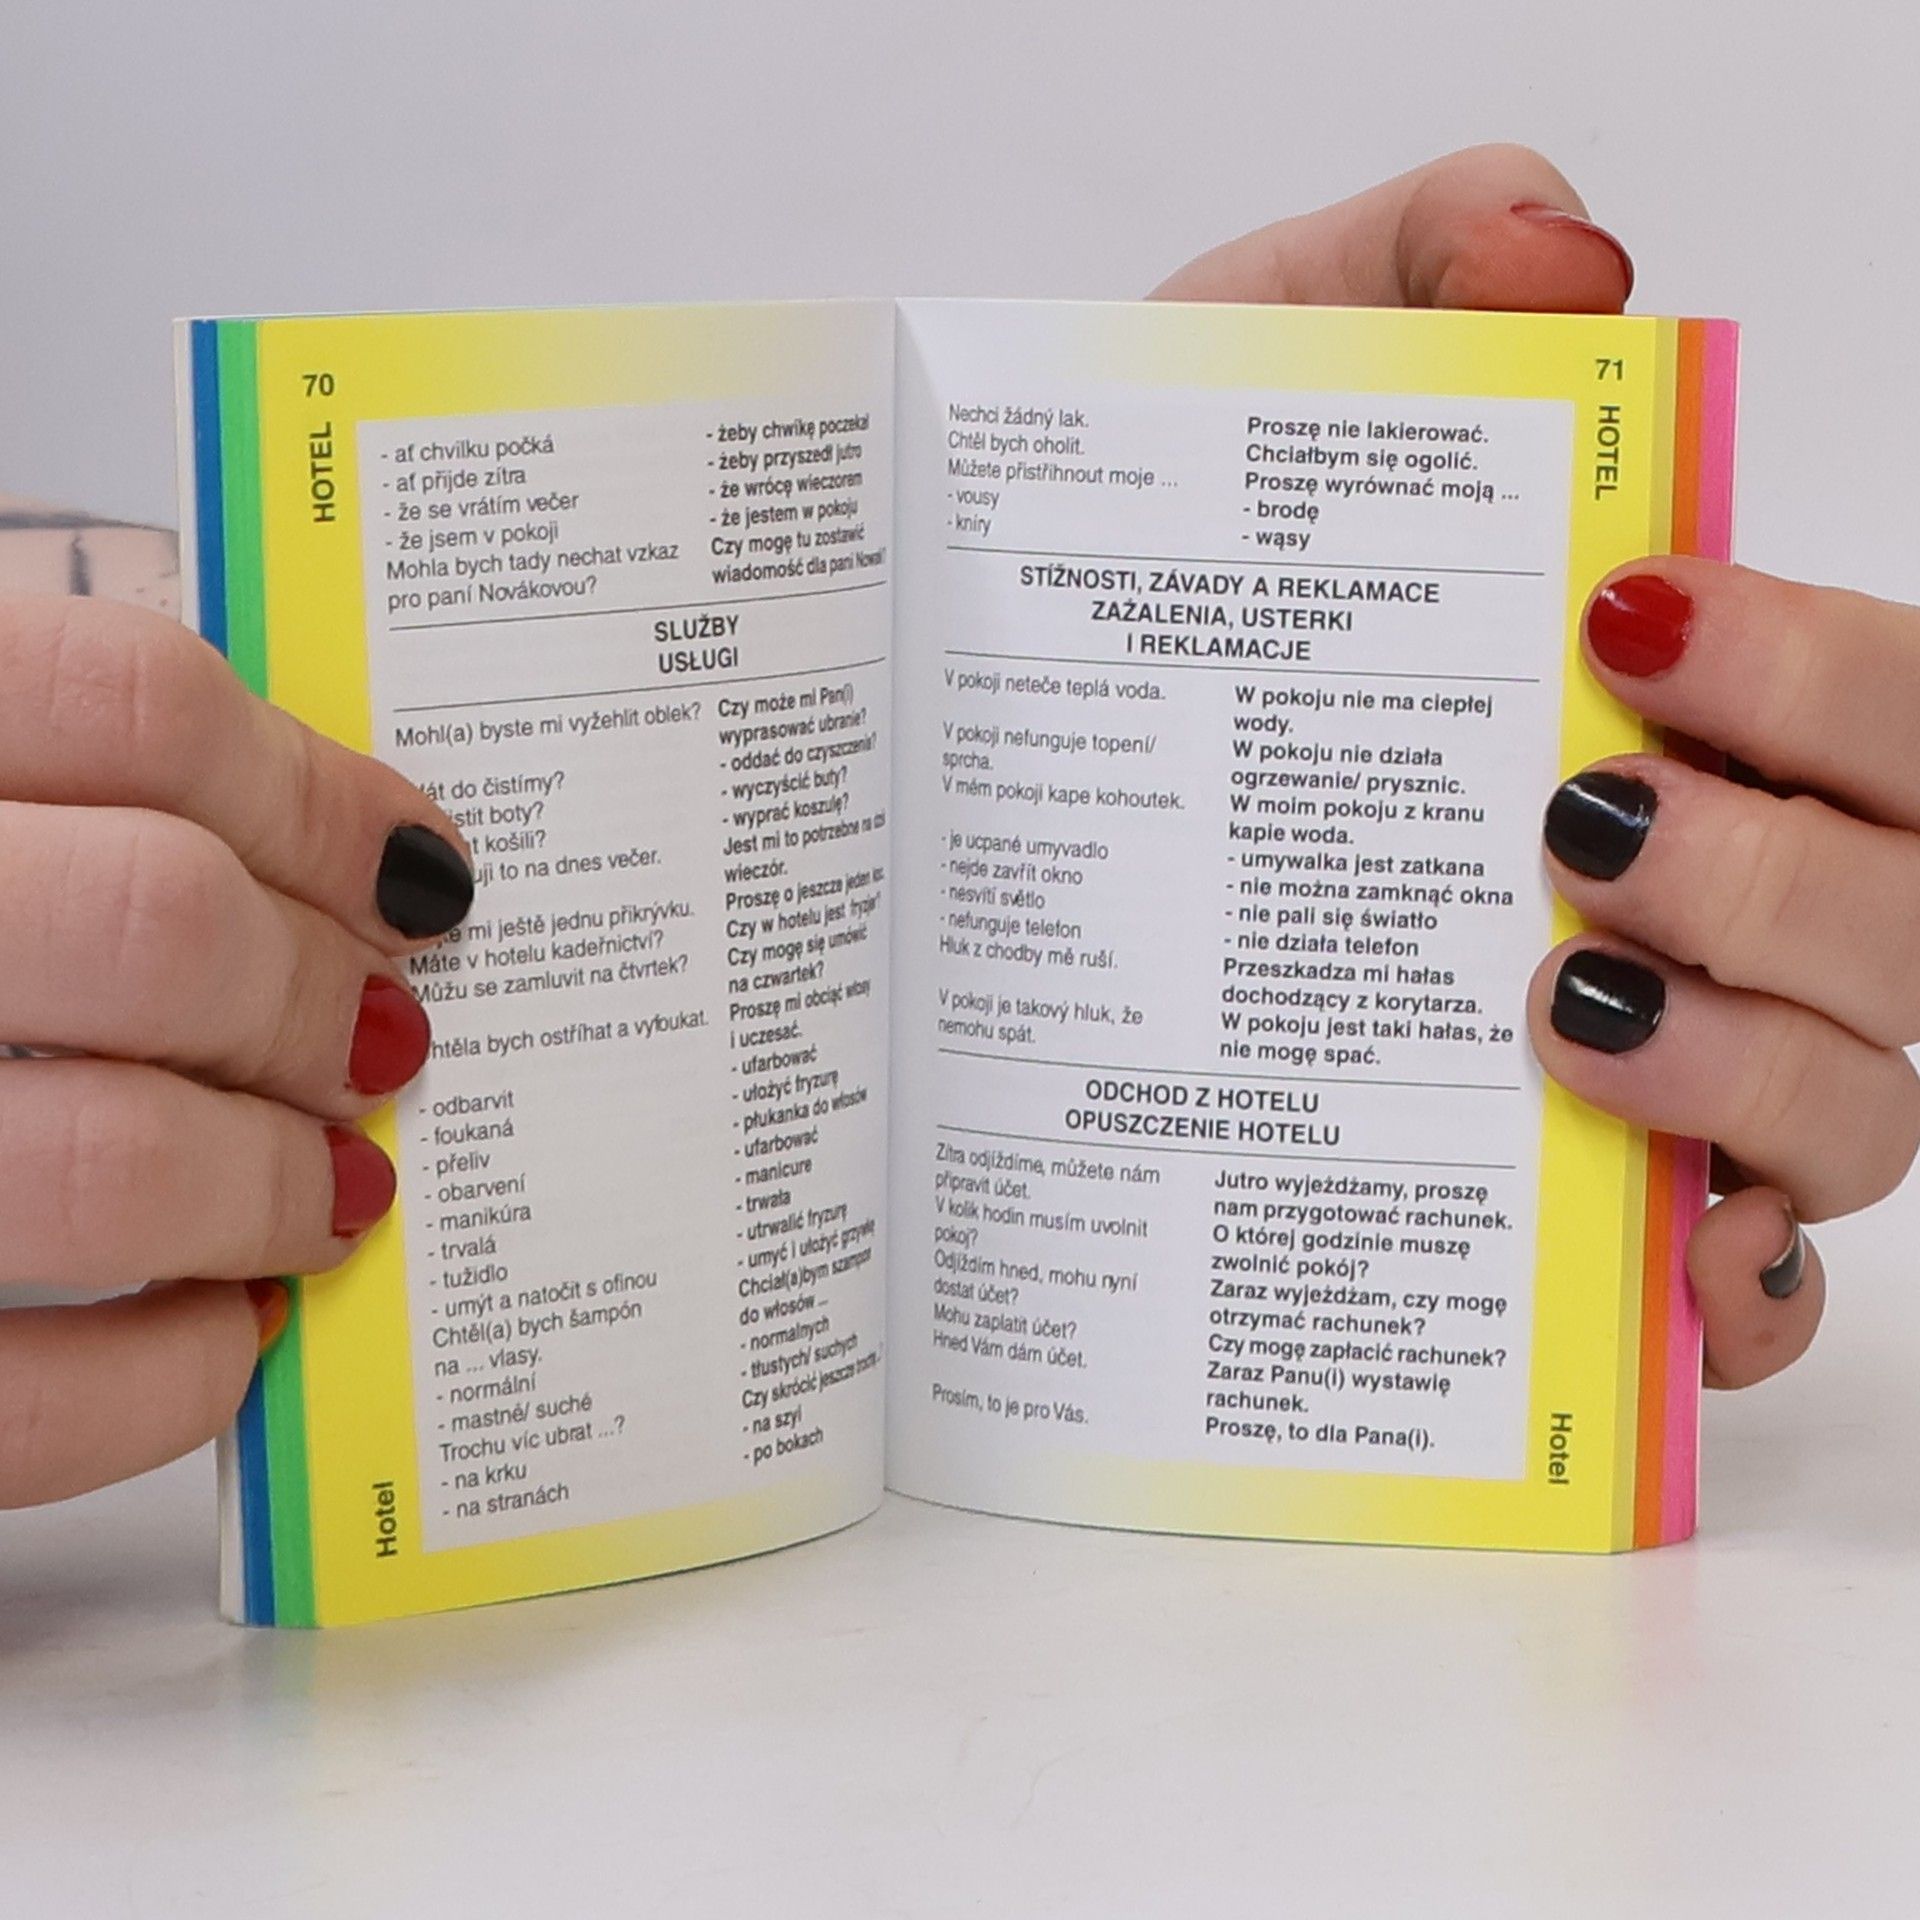 70
HOTEL
- ať chvilku počká
- ať přijde zítra
- že se vrátím večer
- že jsem v pokoji
Mohla bych tady nechat vzkaz
pro paní Novákovou?
- żeby chwikę poczekał
- żeby przyszedł jutro
- że wrócę wieczorem
- że jestem w pokoju
Czy mogę tu zostawić
wiadomość dla pani
SLUŽBY
USŁUGI
Mohl(a) byste mi vyžehlit oblek?
do čistírny?
boty?
košili?
to na dnes večer.
mi ještě jednu přikrývku.
Máte v hotelu kadeřnictví?
Můžu se zamluvit na čtvrtek?
bych ostříhat a vyfoukat.
- odbarvit
- foukaná
- přeliv
- obarvení
- manikúra
- trvalá
- tužidlo
- umýt a natočit s ofinou
Chtěl(a) bych šampón
na ... vlasy.
- normální
- mastné/ suché
Trochu víc ubrat ...?
- na krku
- na stranách
Czy może mi Pan(i)
wyprasować ubranie?
- oddać do czyszczenia?
- wyczyścić buty?
- wyprać koszulę?
Jest mi to potrzebne na dziś
wieczór.
Proszę o jeszcze jeden koc.
Czy w hotelu jest fryzjer?
Czy mogę się umówić
na czwartek?
Proszę mi obciąć włosy
i uczesać.
- ufarbować
- ułożyć fryzurę
- płukanka do włosów
- ufarbować
- manicure
- trwała
- utrwalić fryzurę
- umyć i ułożyć grzywkę
Chciał(a)bym szampon
do włosów ...
- normalnych
- tłustych/ suchych
Czy skrócić jeszcze trochę ...?
- na szyi
- po bokach
Hotel
71
HOTEL
Nechci žádný lak.
Chtěl bych oholit.
Můžete přistřihnout moje ...
- vousy
- kníry
Proszę nie lakierować.
Chciałbym się ogolić.
Proszę wyrównać moją ...
- brodę
- wąsy
STÍŽNOSTI, ZÁVADY A REKLAMACE
ZAŻALENIA, USTERKI
I REKLAMACJE
V pokoji neteče teplá voda.
V pokoji nefunguje topení/
sprcha.
V mém pokoji kape kohoutek.
- je ucpané umyvadlo
- nejde zavřít okno
- nesvítí světlo
- nefunguje telefon
Hluk z chodby mě ruší.
V pokoji je takový hluk, že
nemohu spát.
W pokoju nie ma ciepłej
wody.
W pokoju nie działa
ogrzewanie/ prysznic.
W moim pokoju z kranu
kapie woda.
- umywalka jest zatkana
- nie można zamknąć okna
- nie pali się światło
- nie działa telefon
Przeszkadza mi hałas
dochodzący z korytarza.
W pokoju jest taki hałas, że
nie mogę spać.
ODCHOD Z HOTELU
OPUSZCZENIE HOTELU
Zítra odjíždíme, můžete nám
připravit účet.
V kolik hodin musím uvolnit
pokoj?
Odjíždím hned, mohu nyní
dostat účet?
Mohu zaplatit účet?
Hned Vám dám účet.
Prosím, to je pro Vás.
Jutro wyjeżdżamy, proszę
nam przygotować rachunek.
O której godzinie muszę
zwolnić pokój?
Zaraz wyjeżdżam, czy mogę
otrzymać rachunek?
Czy mogę zapłacić rachunek?
Zaraz Panu(i) wystawię
rachunek.
Proszę, to dla Pana(i).
Hotel